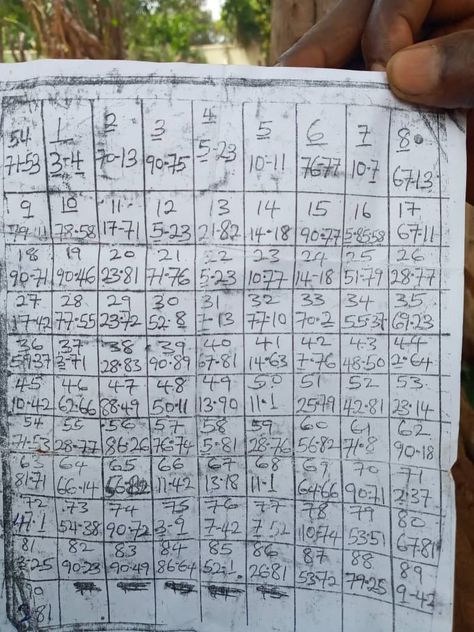 54 1 2 3 4 5 6 7 8
71-53 3-4 70-13 90-75 5-23 10-11 76-77 10-7 67-13
9 10 11 12 13 14 15 16 17
79-11 78-58 17-71 5-23 21-82 14-18 90-77 5-85-58 67-11
18 19 20 21 22 23 24 25 26
90-71 90-46 23-81 71-76 5-23 10-77 14-18 51-79 28-77
27 28 29 30 31 32 33 34 35
17-42 77-55 23-72 52-8 7-13 77-10 70-2 55-37 67-23
36 37 38 39 40 41 42 43 44
2-71 28-83 90-89 67-81 14-63 7-76 48-50 2-64
45 46 47 48 49 50 51 52 53
10-42 62-66 88-49 50-11 13-90 11-1 25-79 42-81 23-14
54 55 56 57 58 59 60 61 62
71-53 28-77 86-26 76-74 5-81 28-76 56-82 71-8 90-18
63 64 65 66 67 68 69 70 71
81-71 66-14 11-42 13-18 11-1 64-66 90-71 2-37
72 73 74 75 76 77 78 79 80
54-38 90-72 3-9 7-42 7-52 10-74 53-51 67-81
81 82 83 84 85 86 87 88 89
90-23 90-49 86-64 52-1 26-81 53-72 79-25 9-42